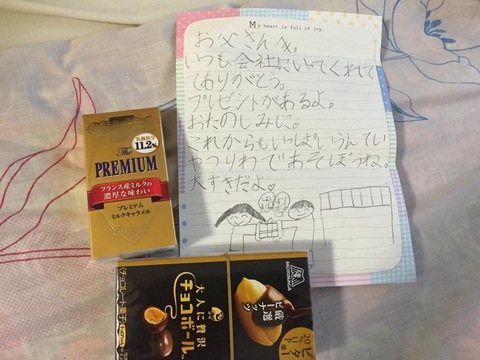 My heart is full of joy.
お父さんへ。
いつも会社にいってくれてて
てありがとう。
プレゼントがあるよ。
おたのしみに。
これからもいっぱいうんてい
やつりわであそぼうね。
大すきだよ。
乳脂肪分
11.2%
The
PREMIUM
フランス産ミルクの
濃厚な味わい
プレミアム
ミルクキャラメル
チョコレート菓子
大人に贅沢
チョコボール
厳選
ピーナッツ
MORINAGA
ビター